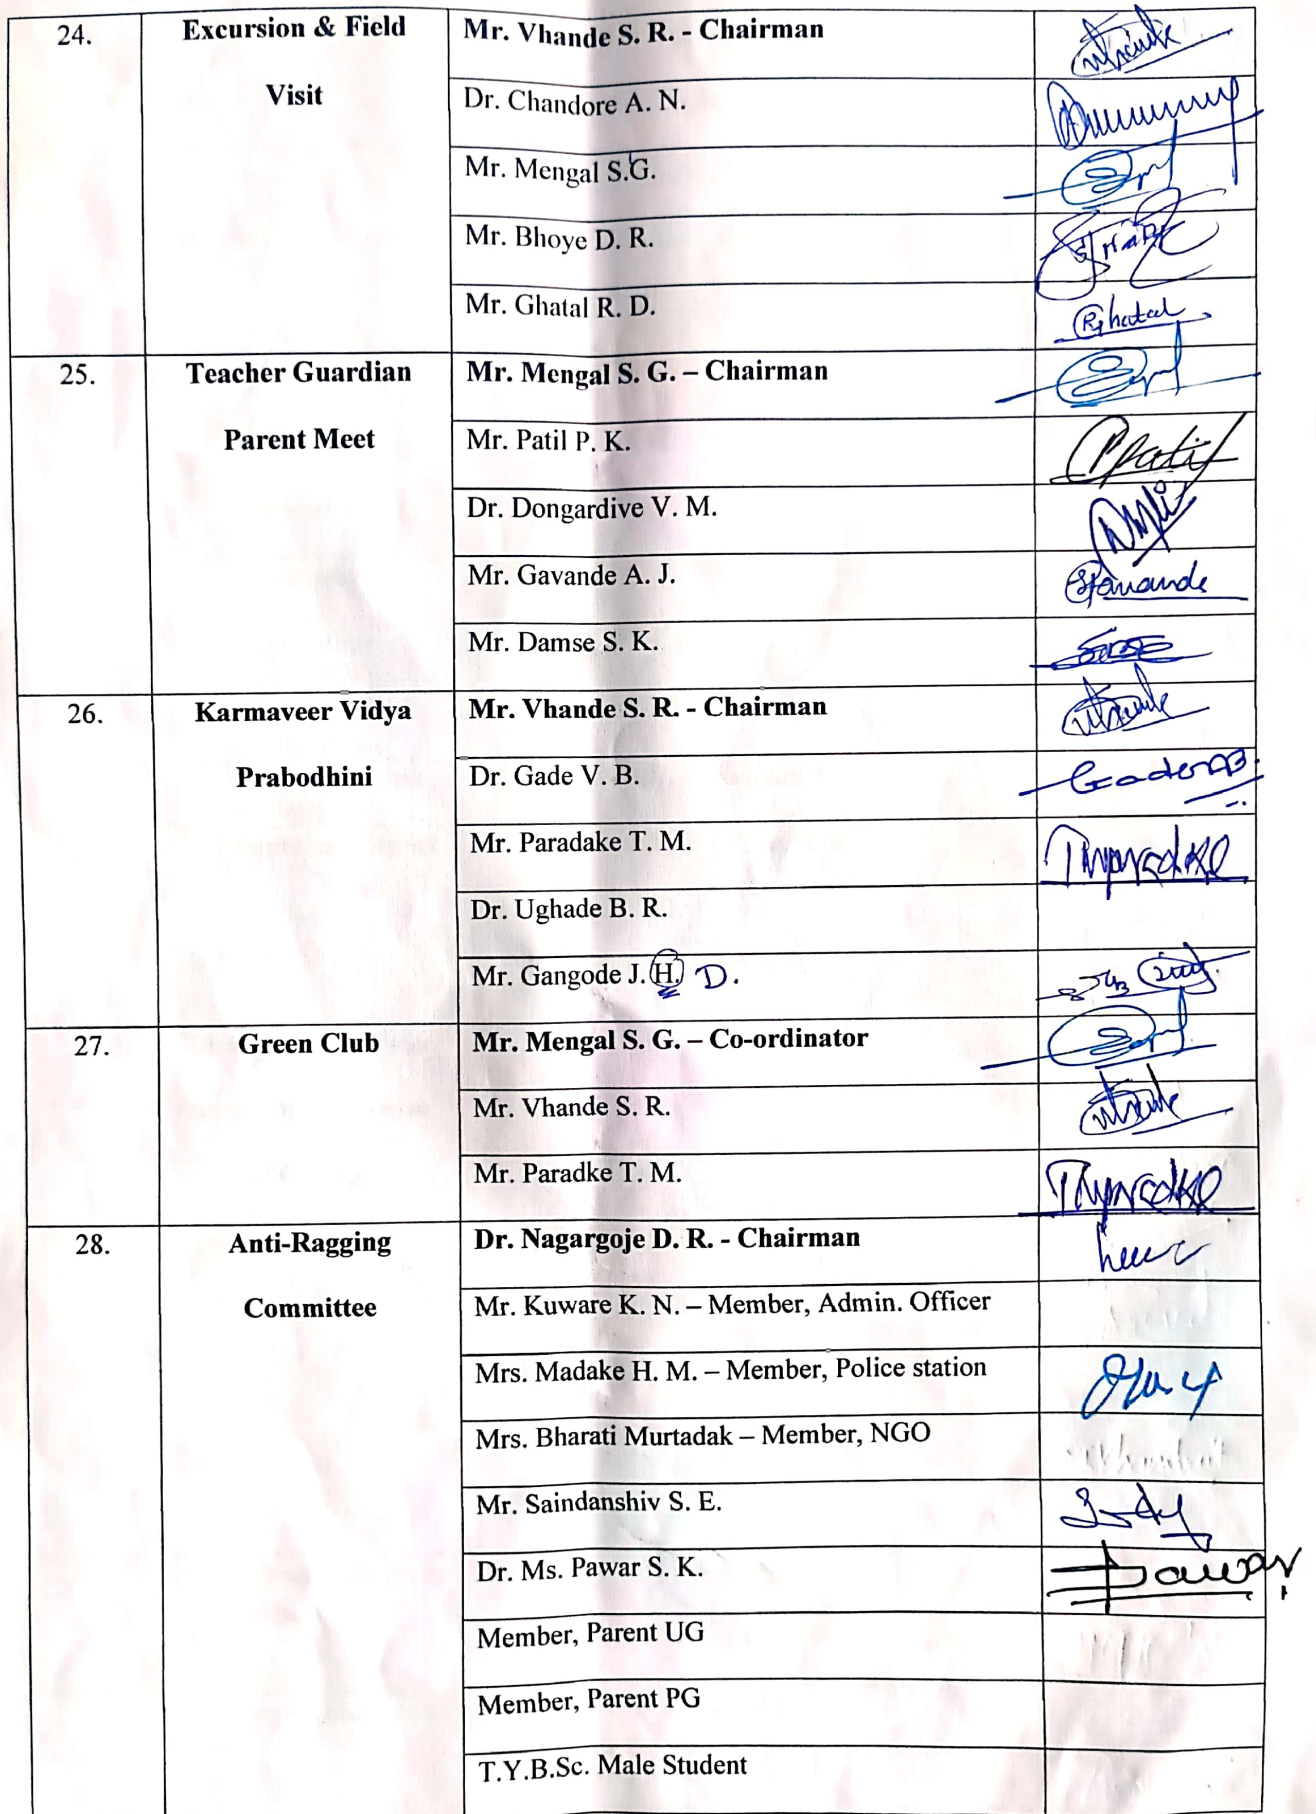 24.
Excursion & Field
Visit
Mr. Vhande S. R. - Chairman
Dr. Chandore A. N.
Mr. Mengal S.G.
Mr. Bhoye D. R.
Mr. Ghatal R. D.
Rghatal
25.
Teacher Guardian
Parent Meet
Mr. Mengal S. G. – Chairman
Mr. Patil P. K.
PPatil
Dr. Dongardive V. M.
Mr. Gavande A. J.
Mr. Damse S. K.
26.
Karmaveer Vidya
Prabodhini
Mr. Vhande S. R. - Chairman
Dr. Gade V. B.
Mr. Paradake T. M.
Dr. Ughade B. R.
Mr. Gangode J. H. D.
27.
Green Club
Mr. Mengal S. G. – Co-ordinator
Mr. Vhande S. R.
Mr. Paradke T. M.
28.
Anti-Ragging
Committee
Dr. Nagargoje D. R. - Chairman
Mr. Kuware K. N. – Member, Admin. Officer
Mrs. Madake H. M. – Member, Police station
Mrs. Bharati Murtadak – Member, NGO
Mr. Saindanshiv S. E.
Dr. Ms. Pawar S. K.
Pawar
Member, Parent UG
Member, Parent PG
T.Y.B.Sc. Male Student